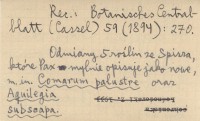 Rec.: Botanisches Central-
blatt (Cassel) 59 (1894): 270.
Odmiany 5 roślin ze Spisza,
które Pax mylnie opisuje jako nowe,
m. in Comarum palustre oraz
Aquilegia
subscapa.